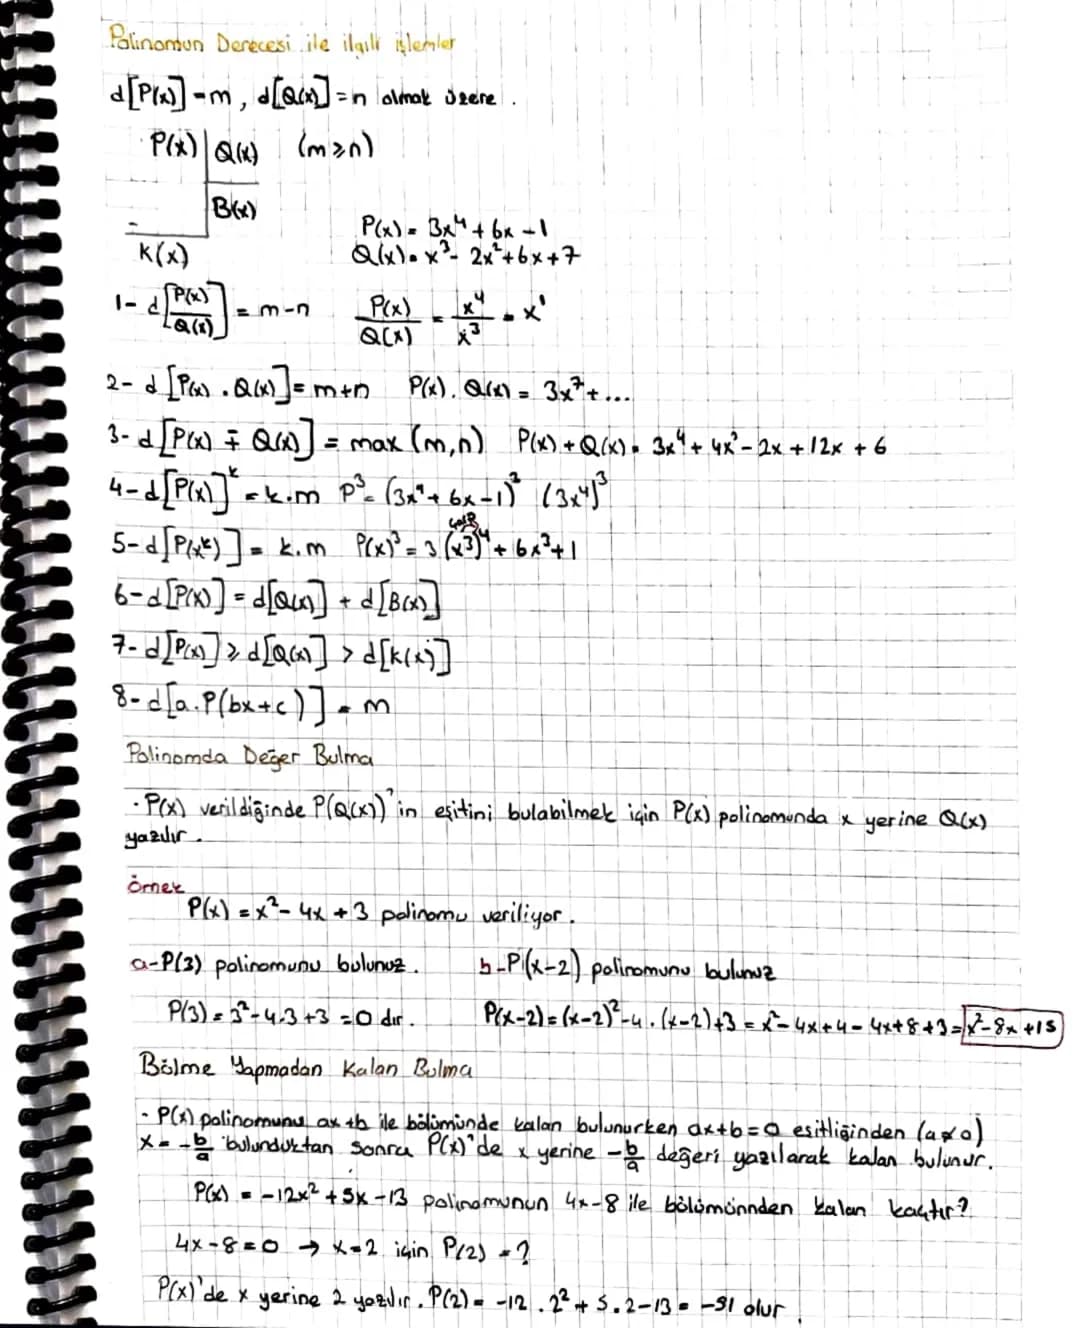 Polinomun Derecesi ile ilgili işlemler
d[P(x)] = m, d[Q(x)] = n olmak üzere.
P(x) | Q(x) (m≥n)
B(x)
-
K(x)
P(x) = 3x⁴ + 6x - 1
Q(x) = x³ - 2x² + 6x + 7
1- d[P(x)/Q(x)] = m-n P(x)/Q(x) = x⁴/x³ = x¹
2- d[P(x) . Q(x)] = m+n P(x). Q(x) = 3x⁷ + ...
3- d[P(x) ∓ Q(x)] = max (m,n) P(x) + Q(x) = 3x⁴ + 4x³ - 2x + 12x + 6
4- d[P(x)]ᵏ = k.m P³ = (3x⁴ + 6x - 1)³ (3x⁴)³
5- d[P(xᵏ)] = k.m P(x)³ = 3(x³)⁴ + 6x³ + 1
6- d[P(x)] = d[Q(x)] + d[B(x)]
7- d[P(x)] ≥ d[Q(x)] > d[K(x)]
8- d[a.P(bx+c)] = m
Polinomda Değer Bulma
· P(x) verildiğinde P(Q(x))'in eşitini bulabilmek için P(x) polinomunda x yerine Q(x)
yazılır.
örnek
P(x) = x² - 4x + 3 polinomu veriliyor.
a- P(3) polinomunu bulunuz. b- P(x-2) polinomunu bulunuz
P(3) = 3² - 4.3 + 3 = 0 dır. P(x-2) = (x-2)² - 4.(x-2) + 3 = x² - 4x + 4 - 4x + 8 + 3 = x² - 8x + 15
Bölme Yapmadan Kalan Bulma
- P(x) polinomunu ax+b ile bölümünde kalan bulunurken ax+b=0 eşitliğinden (a≠0)
x = -b/a bulunduktan sonra P(x)'de x yerine -b/a değeri yazılarak kalan bulunur.
P(x) = -12x² + 5x - 13 polinomunun 4x-8 ile bölümünnden kalan kaçtır?
4x - 8 = 0 → x = 2 için P(2) = ?
P(x)'de x yerine 2 yazılır. P(2) = -12 . 2² + 5.2 - 13 = -51 olur.